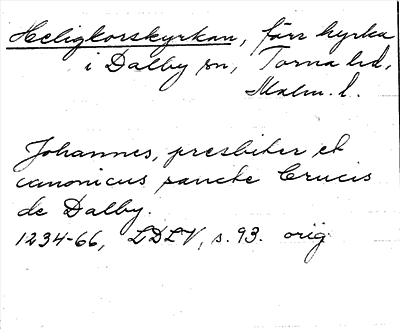 Heligkorskyrkan, förr kyrka
i Dalby sn, Torna hd,
Malm. l.
Johannes, presbiter et
canonicus sancte Crucis
de Dalby.
1234-66, LDLV, s. 93. orig